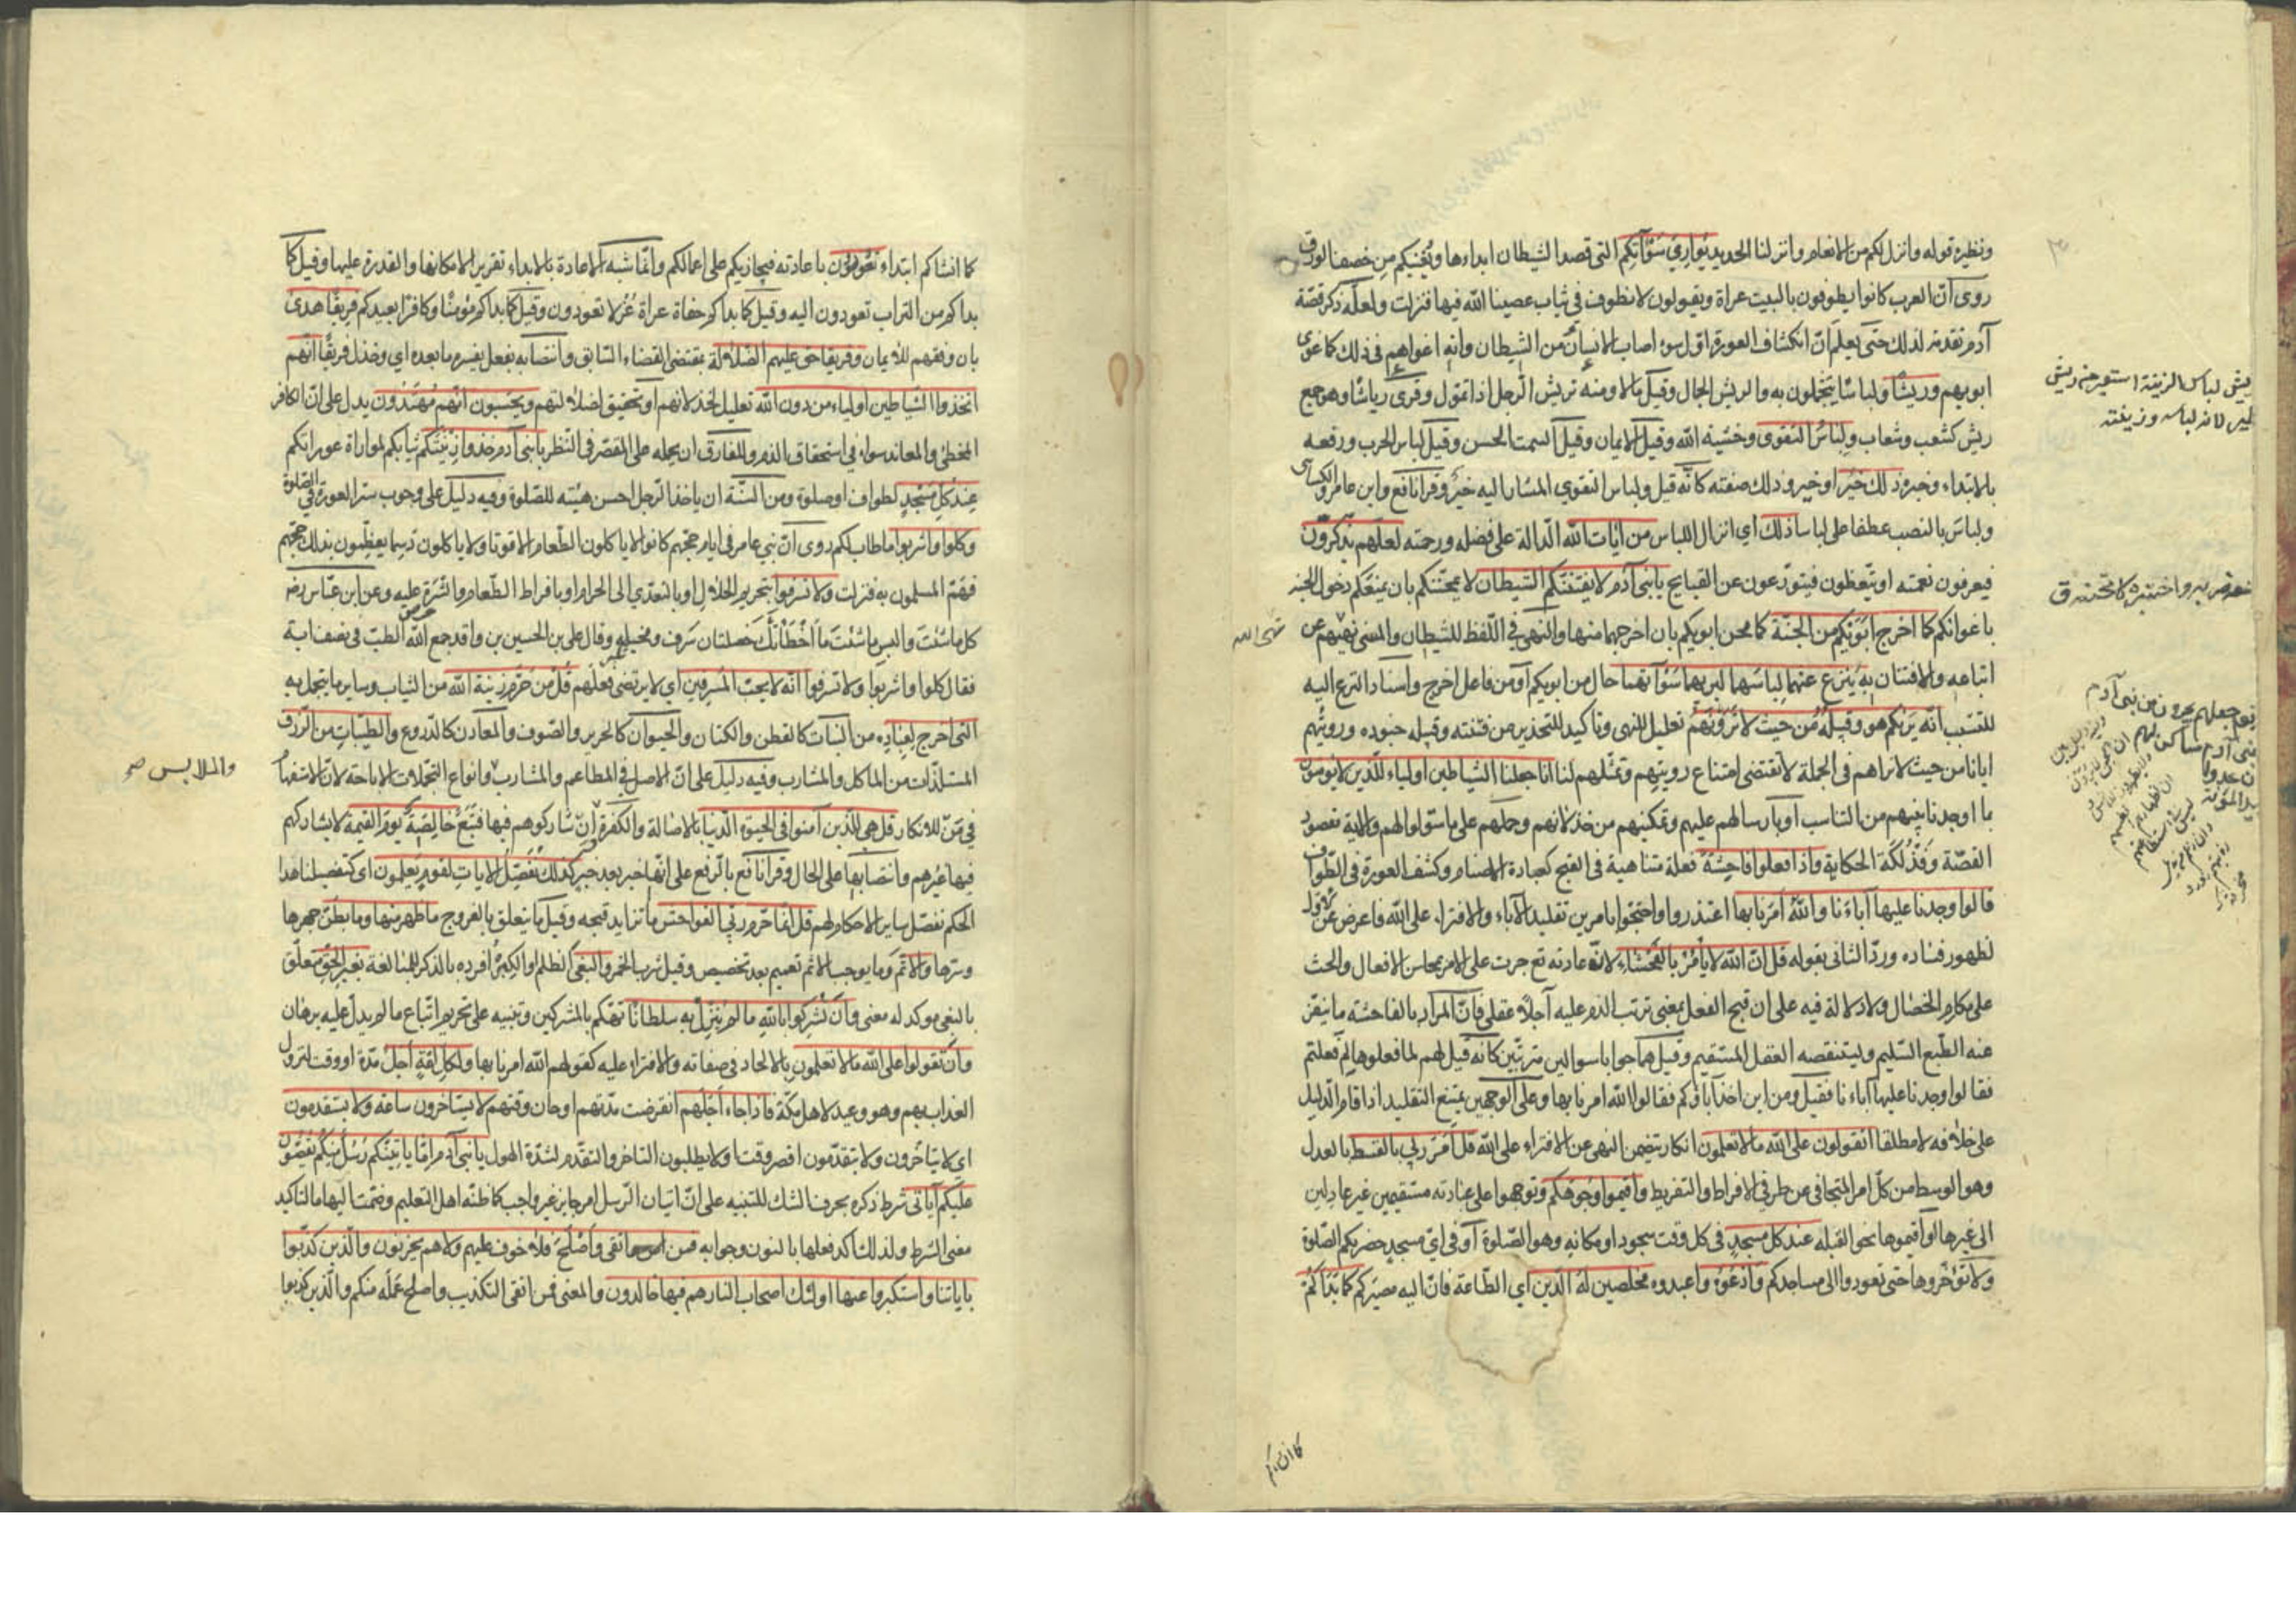 ونظيره قوله وانزل لكم من الانعام وانزلنا الحديد يُوَارِي سَوْآتِكُم التى قصد الشيطان ابداءها ويُغنيكم مِن خصف الورق
روى انّ العرب كانوا يطوفون بالبيت عراة ويقولون لا نطوف فى ثياب عصينا الله فيها فنزلت ولعلّه ذكر قصّة
آدم تقدمة لذلك حتى يعلم انّ انكشاف العورة اوّل سوء اصاب الانسان من الشيطان وانه اغواهم فى ذلك كما غوى
ابويهم وَرِيشًا ولباسًا يتجمّلون به والريش الجمال وقيل مالا ومنه تريش الرجل اذا تموّل وقرى رياشا وهو جمع
ريش كشعب وشعاب وَلِبَاسُ التقوى وخشية الله وقيل الايمان وقيل السمت الحسن وقيل لباس الحرب ورفعه
بالابتداء وخبره ذلك خَيْر او خير وذلك صفته كانّه قيل ولباس التقوى المشار اليه خيرٌ وقرأ نافع وابن عامر والكسائى
ولباسَ بالنصب عطفا على لباسا ذلك اي انزال اللباس من آيات الله الدالة على فضله ورحمته لعلهم يذكرون
فيعرفون نعمته او يتّعظون فيتورّعون عن القبايح يا بنى آدم لا يفتننكم الشيطان لا يمحننّكم بان يمنعكم دخول الجنة
باغوائكم كما اخرج ابويكم من الجنّة كما محن ابويكم بان اخرجهما منها والنهى فى اللّفظ للشيطان والمعنى نهيهم عن
اتباعه والافتتان به يَنزع عنهما لباسهما ليريهما سوآتهما حال من ابويكم او من فاعل اخرج واسناد النزع اليه
للتسبب انّه يريكم هو وقبيله من حيث لا ترونهم تعليل للنهى وتاكيد للتحذير من فتنته وقبيله جنوده ورؤيتهم
ايانا من حيث لا نراهم فى الجملة لا تقتضى امتناع رويتهم وتمثّلهم لنا انا جعلنا الشياطين اولياء للّذين لا يؤمنون
بما اوجدنا بينهم من التناسب او بارسالهم عليهم وتمكينهم من خذلانهم وحملهم على ما سوّلوا لهم والاية مقصود
القصّة وفَذْلكَة الحكاية واذا فعلوا فاحشة فعلة متناهية فى القبح كعبادة الاصنام وكشف العورة فى الطّواف
قالوا وجدنا عليها آباءنا والله أمرنا بها اعتذروا واحتجّوا بامرين تقليد الآباء والافتراء على الله فاعرض عن الاول
لظهور فساده وردّ الثانى بقوله قل انّ الله لا يأمر بالفحشاء لانّ عادته تع جرت على الامر بمحاسن الافعال والحث
على مكارم الخصال ولا دلالة فيه على ان قبح الفعل بمعنى ترتب الذم عليه آجلا عقلى فانّ المراد بالفاحشة ما ينفر
عنه الطّبع السّليم ويستنقصه العقل المستقيم وقيل هما جوابا سوالين مترتّبين كانه قيل لهم لما فعلوها لِمَ فعلتم
فقالوا وجدنا عليها آباءنا فقيل ومن اين اخذ آباؤكم فقالوا الله امرنا بها وعلى الوجهين يمتنع التقليد اذا قام الدّليل
على خلافه لا مطلقا اتقولون على الله ما لا تعلمون انكار يتضمن النهى عن الافتراء على الله قل امر ربى بالقسط بالعدل
وهو الوسط من كلّ امر المتجافى عن طرفى الافراط والتفريط واقيموا وجوهكم وتوجهوا على عبادته مستقيمين غير عادلين
الى غيرها او اقيموها نحو القبلة عند كل مسجدٍ فى كل وقت سجود او مكانه وهو الصّلوة او فى اىّ مسجد حضرتكم الصّلوة
ولا تؤخّروها حتى تعودوا الى مساجدكم وادعوه واعبدوه مخلصين له الدّين اي الطّاعة فانّ اليه مصيركم كما بدأكم
كما انشاكم ابتداء تعودون باعادته فيجازيكم على اعمالكم وانما شبه الاعادة بالابداء تقريرا لامكانها والقدرة عليها وقيل كما
بدأكم من التراب تعودون اليه وقيل كما بداكم حفاة عراة غُرلا تعودون وقيل كما بداكم مؤمنًا وكافرًا يعيدكم فريقًا هدى
بان وفقهم للايمان وفريقا حق عليهم الضّلالة بمقتضى القضاء السّابق وانتصابه بفعل يفسره ما بعده اي وخذل فريقًا انّهم
اتخذوا الشياطين اولياء من دون الله تعليل لخذلانهم او تحقيق لضلالتهم ويحسبون انّهم مُهتدون يدل على انّ الكافر
المخطئ والمعاند سواء فى استحقاق الذم وللفارق ان يحمله على المقصّر فى النّظر يا بنى آدم خذوا زينتكم ثيابكم لمواراة عوراتكم
عند كل مَسْجدٍ لطواف او صلوة ومن السّنّة ان ياخذ الرّجل احسن هيئته للصّلوة وفيه دليل على وجوب ستر العورة فى الصّلوة
وكلوا واشربوا ما طاب لكم روى انّ بنى عامر فى ايام حجّهم كانوا لا ياكلون الطّعام الا قوتا ولا ياكلون دسما يعظّمون بذلك حجّهم
فهمّ المسلمون به فنزلت ولا تسرفوا بتحريم الحلال او بالتعدّى الى الحرام او بافراط الطّعام والشّره عليه وعن ابن عبّاس رضه
كل ما شئت والبس ما شئت ما اخطأتك خصلتان سرف ومخيلة وقال على بن الحسين بن واقد جمع الله الطبّ فى نصف اية
فقال كلوا واشربوا ولا تسرفوا انّه لا يحبّ المسرفين اي لا يرتضى فعلهم قل من حرّم زينة الله من الثياب وساير ما يتجمل به
التى اخرج لعباده من النّبات كالقطن والكتان والحيوان كالحرير والصّوف والمعادن كالدّروع والطيّبات من الرّزق
المستلذّات من الماكل والمشارب وفيه دليل على انّ الاصل فى المطاعم والمشارب وانواع التجمّلات الاباحة لانّ الاستفهام
فى مَنْ للانكار قل هى للّذين آمنوا فى الحيوة الدّنيا بالاصالة والكفرة وان شاركوهم فيها فتبَعٌ خالصة يوم القيمة لا يشاركهم
فيها غيرهم وانتصابها على الحال وقرا نافع بالرّفع على انّها خبر بعد خبر كذلك نفصّل الايات لقوم يعلمون اى كتفصيلنا هذا
الحكم نفصّل ساير الاحكام لهم قل انّما حرّم ربّى الفواحش ما تزايد قبحه وقيل ما يتعلق بالفروج ما ظهر منها وما بطن جهرها
وسرها والاثم وما يوجب الاثم تعميم بعد تخصيص وقيل شرب الخمر والبغى الظلم او الكبر افرده بالذكر للمبالغة بغير الحق متعلّق
بالبغى موكد له معنى وأن تُشركوا بالله ما لم ينزّل به سلطانا تهكّم بالمشركين وتنبيه على تحريم اتّباع ما لم يدل عليه برهان
وأن تقولوا على الله ما لا تعلمون بالالحاد فى صفاته والافتراء عليه كقولهم الله امرنا بها ولكل امّة أجل مدّة او وقت لنزول
العذاب بهم وهو وعيد لاهل مكّة فاذا جاء أجلهم انقرضت مدّتهم او حان وقتهم لا يستأخرون ساعة ولا يستقدمون
اى لا يتأخرون ولا يتقدّمون اقصر وقت او لا يطلبون التاخر والتقدّم لشدّة الهول يا بنى آدم امّا ياتينّكم رسل منكم يقصّون
عليكم آياتى شرط ذكره بحرف الشك للتنبيه على انّ اتيان الرّسل امر جايز غير واجب كما ظنّه اهل التعليم وضمّت اليها ما لتاكيد
معنى الشرط ولذلك اكد فعلها بالنون وجوابه فمن اتقى وأصلح فلا خوف عليهم ولا هم يحزنون والّذين كذّبوا
باياتنا واستكبروا عنها اولئك اصحاب النار هم فيها خالدون والمعنى فمن اتقى التكذيب واصلح عمله منكم والّذين كذبوا
والملابس صح
كما انشاكم